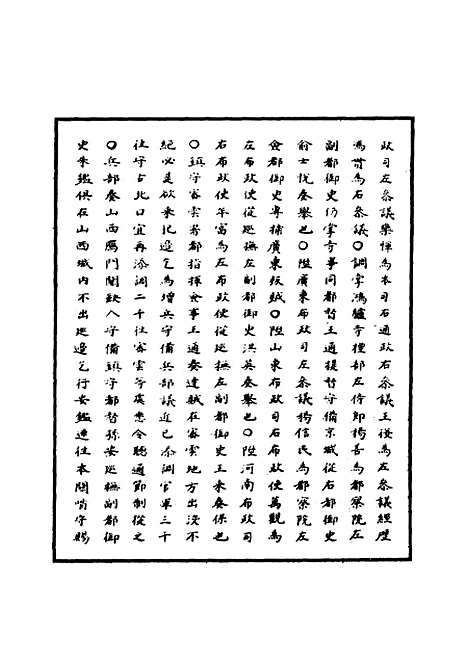 政司左參議欒惲為本司右通政右參議王復為左參議經歷
馮貫為右參議○調掌鴻臚寺事禮部左侍郎楊善為都察院左
副都御史仍掌寺事同都督王通提督守備京城從右都御史
俞士悅奏舉也○陞廣東布政司左參議楊信民為都察院左
僉都御史專捕廣東叛賊○陞山東布政司右布政使萬觀為
左布政使從巡撫左副都御史洪英奏舉也○陞河南布政司
右布政使年富為左布政使從巡撫左副都御史王來奏保也
○鎮守密雲署都指揮僉事王通奏達賊在密雲地方出沒不
絕必是欲來犯邊乞為增兵守備兵部議近已添調官軍三千
往守古北口宜再添調二千往密雲等處悉令聽通節制從之
○兵部奏山西鴈門關缺人守備鎮守都督孫安巡撫副都御
史朱鑑俱在山西城內不出巡邊乞行安鑑速往本關哨守賜